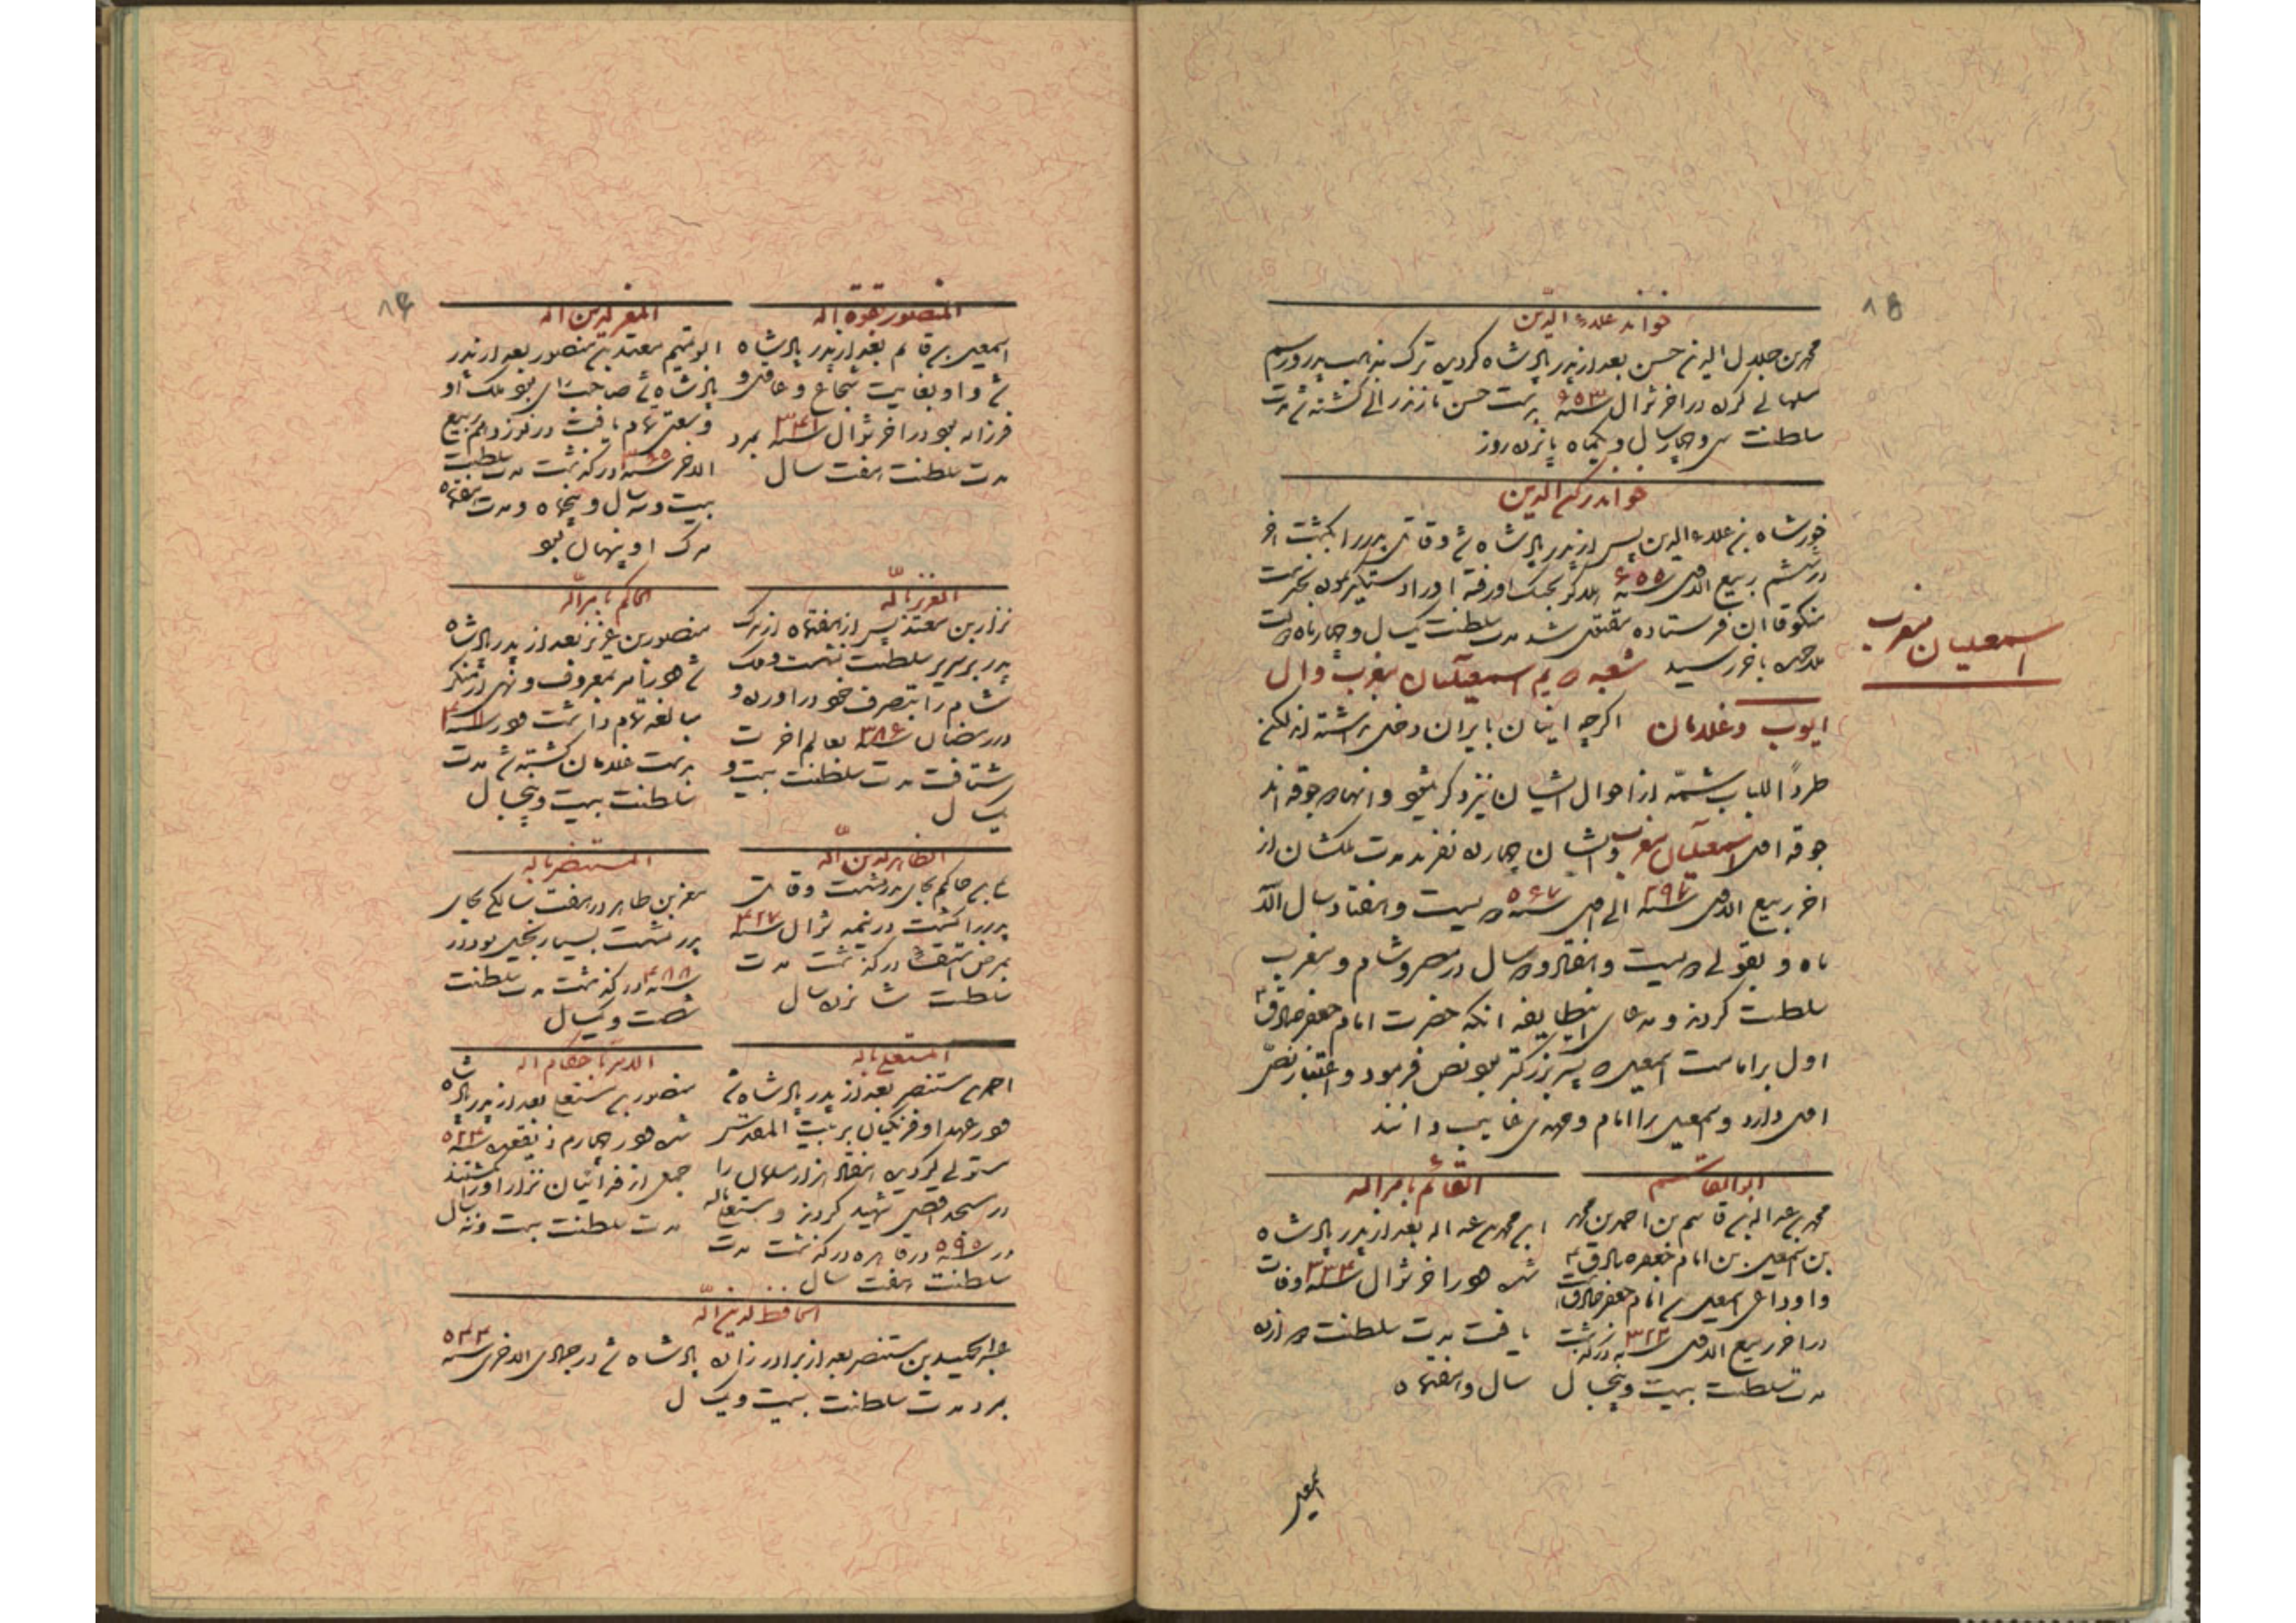 خواند علاء الدین
محمد بن جلال الدین حسن بعد از پدر پادشاه کردید ترک مذهب پدر و رسم
مسلمانی کرد در اخر شوال سنه ۶۵۳ بدست حسن مازندرانی کشته شد مدت
سلطنت سی و چهار سال و یکماه پانزده روز
خواند رکن الدین
خورشاه بن علاء الدین پس از پدر پادشاه شد و قاتل پدر را بکشت اخر
در ششم ربیع الاول سنه ۶۵۵ هلاکو بجنک او رفته او را دستگیر نموده بخدمت
منکوقاان فرستاده مقتول شد مدت سلطنت یکسال و چهار ماه دولت
ملاحده باخر رسید شعبه دویم اسمعیلیان مغرب و ال
اسمعیلیان مغرب
ایوب و غلامان اکرچه اینان بایران دخلی نداشته اند لکن
طرداً للباب شمّه از احوال ایشان نیز ذکر میشود و انها دو جوقه اند
جوقه اول اسمعیلیان مغرب و ایشان چهارده نفرند مدت ملکشان از
اخر ربیع الاول سنه ۲۹۷ الی اول سنه ۵۶۷ دویست و هفتاد سال الّا
ماه و بقولی دویست و هفتاد و دو سال در مصر و شام و مغرب
سلطنت کردند و مدعای اینطایفه انکه حضرت امام جعفر صادق ع
اول بر امامت اسمعیل که پسر بزرکتر بود نص فرمود و اعتبار نصّ
اول دارد و اسمعیل را امام و مهدی غایب دانند
ابوالقاسم
محمد بن عبد اله بن قاسم بن احمد بن محمد
بن اسمعیل بن امام جعفر صادق ع
و او داعی اسمعیل بن امام جعفر صادق است
در اخر ربیع الاول سنه ۳۲۲ درکذشت
مدت سلطنت بیست و پنجسال
القائم بامر اله
ابن محمد بن عبد اله بعد از پدر پادشاه
شد در اخر شوال سنه ۳۳۴ وفات
یافت مدت سلطنت دوازده
سال و هفتماه
اسمعیل
المنصور بقوة اله
اسمعیل بن قائم بعد از پدر پادشاه
شد و او بغایت شجاع و عاقل و
فرزانه بود در اخر شوال سنه ۳۴۱ بمرد
مدت سلطنت هفت سال
المعز لدین اله
ابو تمیم معتد بن منصور بعد از پدر
پادشاه شد صاحب رای بود ملک او
وسعتی تمام یافت در نوزدهم ربیع
الاخر سنه ۳۶۵ درکذشت مدت سلطنت
بیست و سه سال و پنجماه و مدت هفتماه
مرک او پنهان بود
العزیز باللّه
نزار بن معتد پس از هفتماه از مرک
پدر بر سریر سلطنت نشست و ملک
شام را بتصرف خود در اورده و
در رمضان سنه ۳۸۶ بعالم اخرت
شتافت مدت سلطنت بیست و
یکسال
الحاکم بامر اللّه
منصور بن عزیز بعد از پدر پادشاه
شد و در امر بمعروف و نهی از منکر
مبالغه تمام داشت در سنه ۴۱۱
بدست غلامان کشته شد مدت
سلطنت بیست و پنجسال
الظاهر لدین اللّه
علی بن حاکم بجای پدر نشست و قاتل
پدر را کشت در نیمه شوال سنه ۴۲۷
بمرض استسقا درکذشت مدت
سلطنت شانزده سال
المستنصر باله
معز بن ظاهر در هفت سالکی بجای
پدر نشست بسیار بخیل بود در
سنه ۴۸۸ درکذشت مدت سلطنت
شصت و یکسال
المستعلی باله
احمد بن مستنصر بعد از پدر پادشاه شد
در عهد او فرنکیان بر بیت المقدس
مستولی کردیده هفتاد هزار مسلمان را
در مسجد اقصی شهید کردند و مستعلی باله
در سنه ۵۹۵ در قاهره درکذشت مدت
سلطنت هفت سال
الامر باحکام اله
منصور بن مستعلی بعد از پدر پادشاه
شد در چهارم ذیقعده سنه ۵۲۴
جمعی از فدائیان نزار او را کشتند
مدت سلطنت بیست و نه سال
الحافظ لدین اللّه
عبد الحمید بن مستنصر بعد از برادر زاده پادشاه شد در جمادی الاخری سنه ۵۴۴
بمرد مدت سلطنت بیست و یکسال